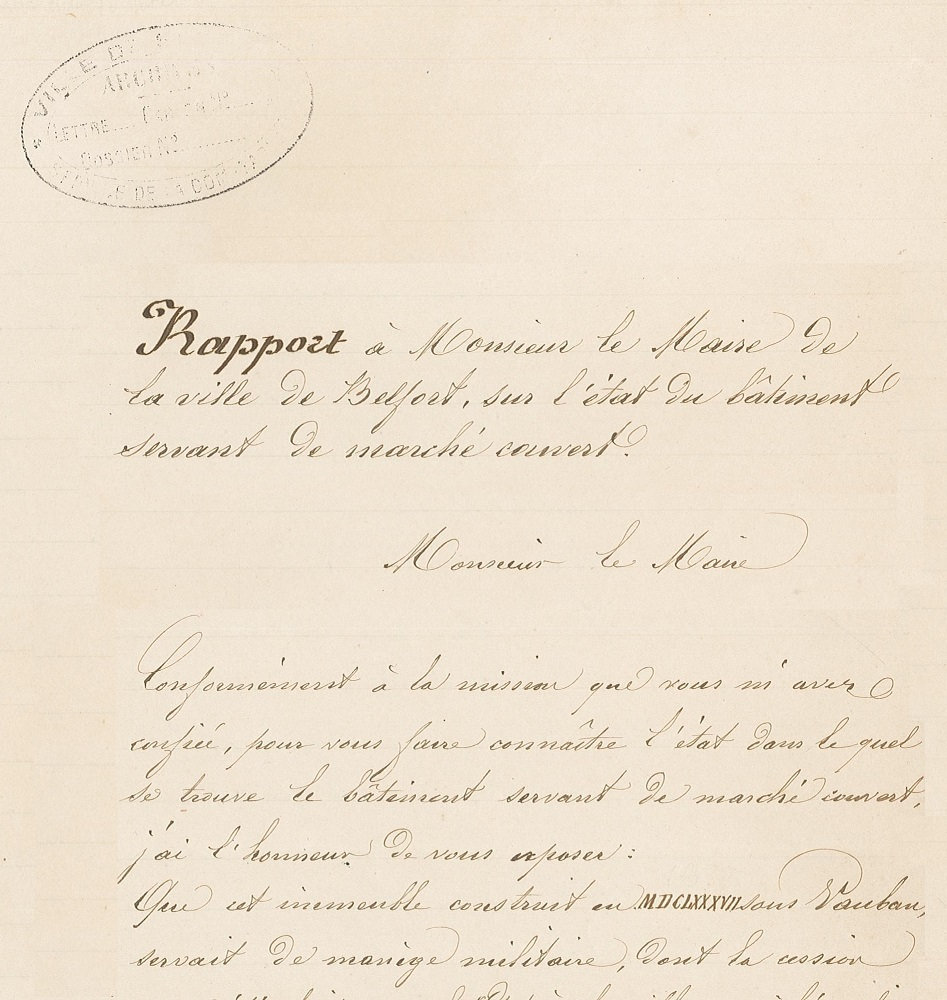 VILLE DE
ARCHIVES
LETTRE
DOSSIER No
Rapport à Monsieur le Maire de
la ville de Belfort, sur l'état du bâtiment
servant de marché couvert.
Monsieur le Maire
Conformément à la mission que vous m'avez
confiée, pour vous faire connaître l'état dans le quel
se trouve le bâtiment servant de marché couvert,
j'ai l'honneur de vous exposer :
Que cet immeuble construit en MDCLXXXVII sous Vauban,
servait de manège militaire, dont la cession